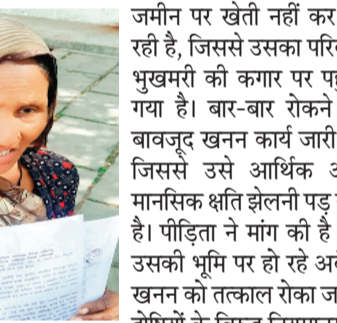 जमीन पर खेती नहीं कर
रही है, जिससे उसका
भुखमरी की कगार पर
गया है। बार-बार रोकने
बावजूद खनन कार्य जारी
जिससे उसे आर्थिक
मानसिक क्षति झेलनी पड़
है। पीड़िता ने मांग की है
उसकी भूमि पर हो रहे
खनन को तत्काल रोका